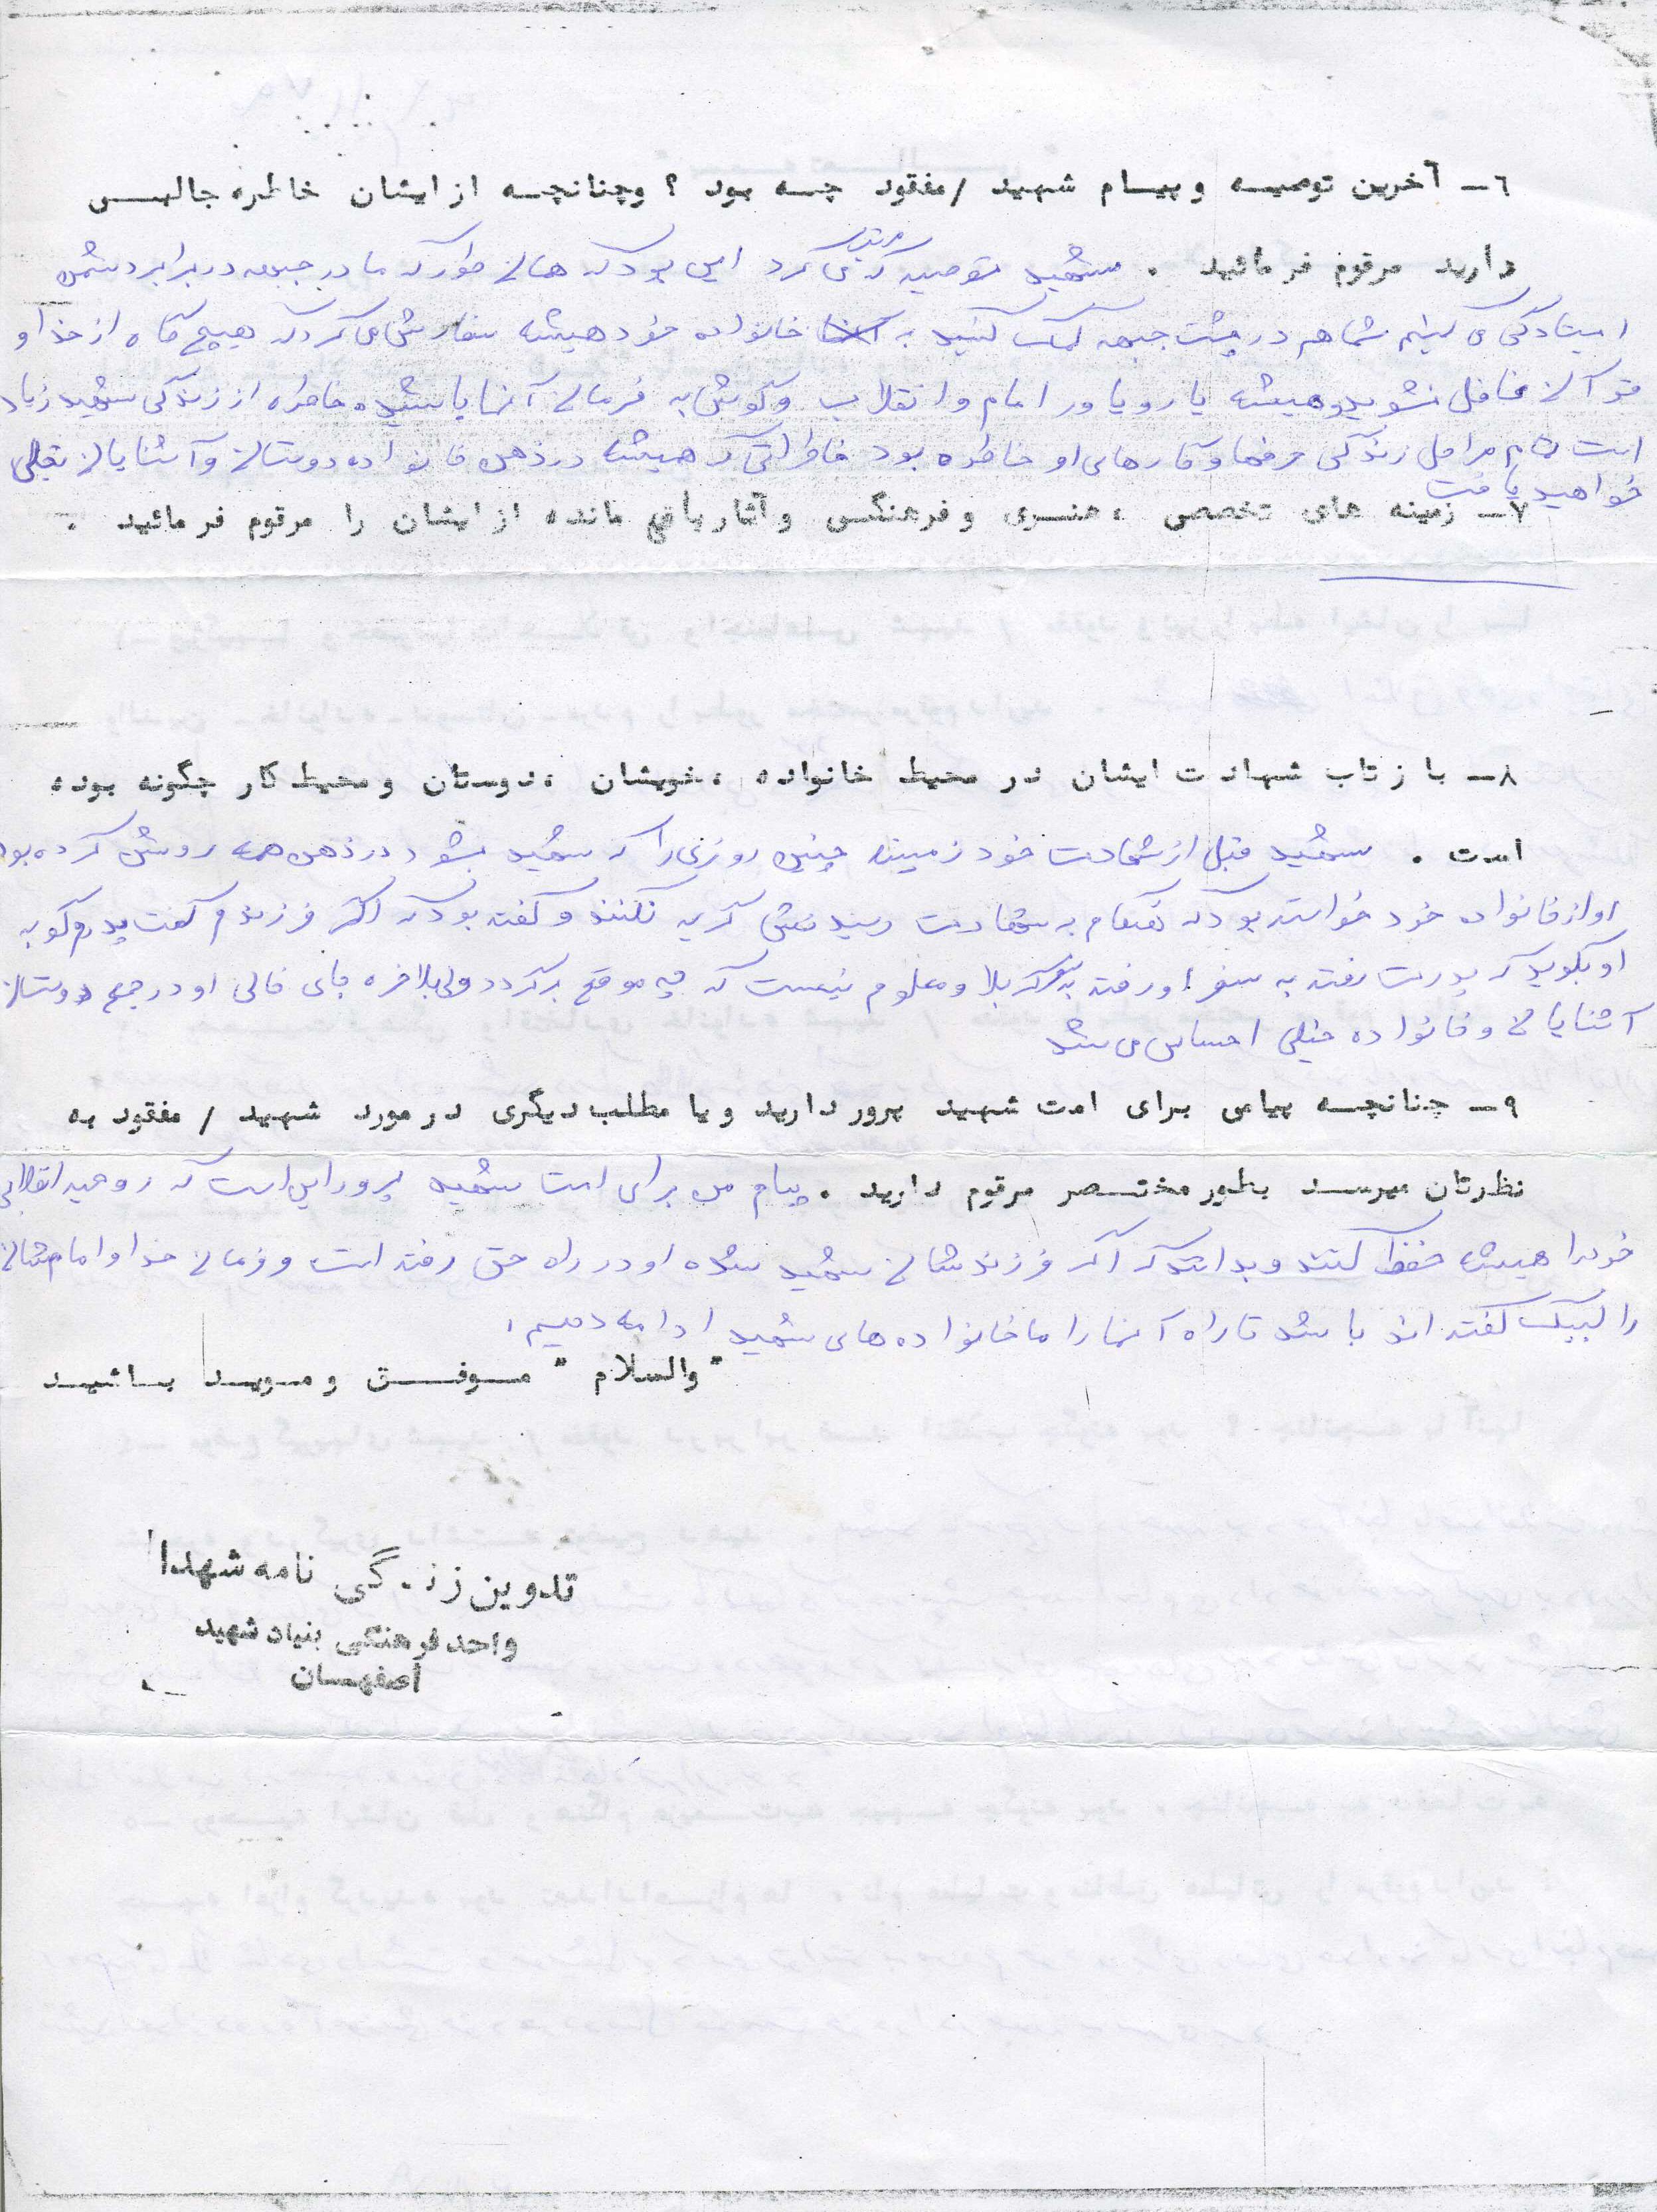 ٦ـ آخرین توصیـه و پیـام شهید /مفقود چـه بود ؟ وچنانچـه از ایشان خاطره جالبـی
دارید مرقوم فرمائید . شهید توصیه که می کرد این بود که همان طور که ما در جبهه در برابر دشمن
ایستادگی می کنیم شما هم در پشت جبهه کمک کنید به خانواده خود همیشه سفارش می کرد که هیچ گاه از خدا و
قرآن غافل نشوید و همیشه یار و یاور امام و انقلاب و گوش به فرمان آنها باشید خاطره از زندگی شهید زیاد
است تمام مراحل زندگی حرفها و کارهای او خاطره بود خاطراتی که همیشه در ذهن خانواده دوستان و آشنایان تجلی
خواهید یافت
٧ـ زمینه های تخصصی ، هنـری و فرهنگـی و آثار باقی مانده از ایشان را مرقوم فرمائید .
٨ـ بازتاب شهادت ایشان در محیط خانواده ، خویشان ، دوستان و محیط کار چگونه بوده
است . شهید قبل از شهادت خود زمینه چنین روزی را که شهید بشود در ذهن همه روشن کرده بود
او از خانواده خود خواسته بود که هنگام به شهادت رسیدنش گریه نکنند و گفته بود که اگر فرزندم گفت پدرم کو به
او بگوید که پدرت رفته به سفر او رفته به سفر کربلا و معلوم نیست که چه موقع برگردد ولی بلاخره جای خالی او در جمع دوستان
آشنایان و خانواده خیلی احساس می شد
٩ـ چنانچـه پیامی برای امت شهید پرور دارید و یا مطلب دیگری در مورد شهید / مفقود به
نظرتان میرسـد بطور مختـصر مرقوم دارید . پیام من برای امت شهید پرور این است که روحیه انقلابی
خود را همیشه حفظ کنند و بدانند که اگر فرزندشان شهید شده او در راه حق رفته است و فرمان خدا و امامشان
را لبیک گفته اند باشد تا راه آنها را ما خانواده های شهید ادامه دهیم .
" والسلام " مـوفـق و مـویـد بـاشیـد
تدوین زندگی نامه شهدا
واحد فرهنگی بنیاد شهید
اصفهـان